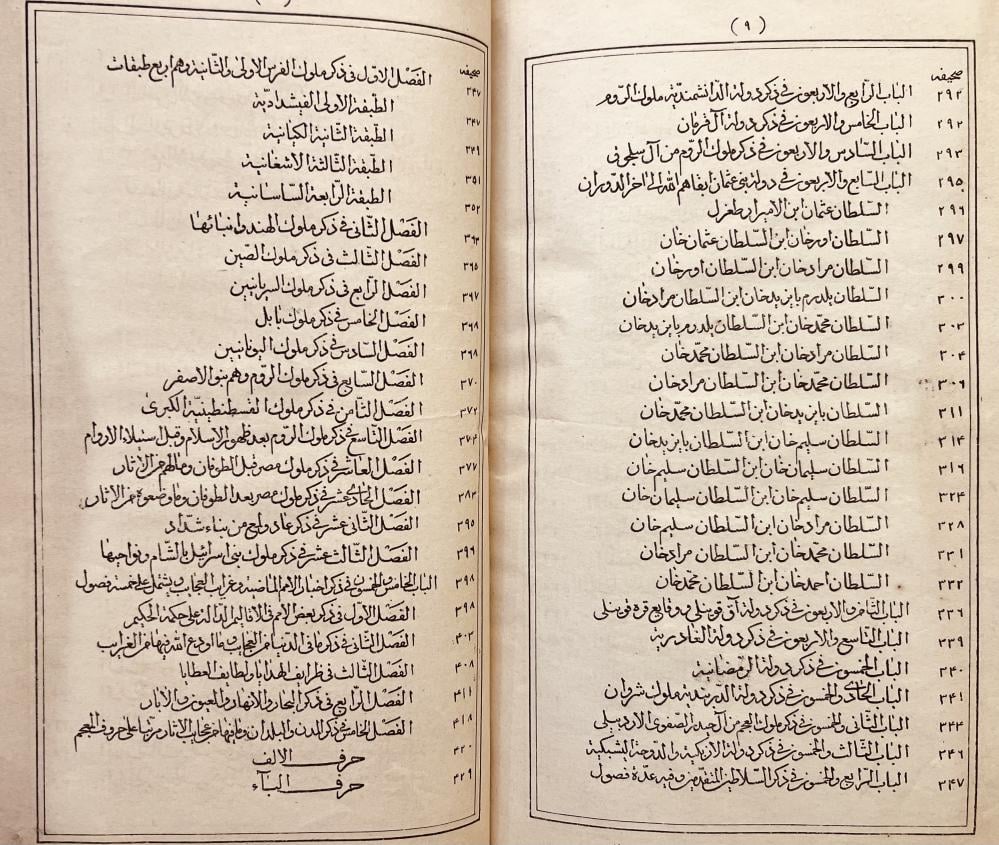 (٩)
صحيفه
الباب الرابع والاربعون فى ذكر دولة الدانشمندية ملوك الروم ٢٩٢
الباب الخامس والاربعون فى ذكر دولة آل قرمان ٢٩٢
الباب السادس والاربعون فى ذكر ملوك الروم من آل سلجوق ٢٩٣
الباب السابع والاربعون فى دولة بنى عثمان ابقاهم الله الى آخر الدوران ٢٩٥
السلطان عثمان ابن الامير ارطغرل ٢٩٦
السلطان اورخان ابن السلطان عثمان خان ٢٩٧
السلطان مراد خان ابن السلطان اورخان ٢٩٩
السلطان يلدرم بايزيد خان ابن السلطان مراد خان ٣٠٠
السلطان محمد خان ابن السلطان يلدرم بايزيد خان ٣٠٣
السلطان مراد خان ابن السلطان محمد خان ٣٠٤
السلطان محمد خان ابن السلطان مراد خان ٣٠٦
السلطان بايزيد خان ابن السلطان محمد خان ٣١١
السلطان سليم خان ابن السلطان بايزيد خان ٣١٤
السلطان سليمان خان ابن السلطان سليم خان ٣١٦
السلطان سليم خان ابن السلطان سليمان خان ٣٢٤
السلطان مراد خان ابن السلطان سليم خان ٣٢٨
السلطان محمد خان ابن السلطان مراد خان ٣٣١
السلطان احمد خان ابن السلطان محمد خان ٣٣٢
الباب الثامن والاربعون فى ذكر دولة آق قوينلى ووقايع قره قوينلى ٣٣٦
الباب التاسع والاربعون فى ذكر دولة القادرية ٣٣٩
الباب الخمسون فى ذكر دولة الرمضانية ٣٤٠
الباب الحادى والخمسون فى ذكر دولة الدربندية ملوك شروان ٣٤١
الباب الثانى والخمسون فى ذكر ملوك العجم من آل حيدر الصفوى الاردبيلى ٣٤٣
الباب الثالث والخمسون فى ذكر دولة الازبكية والدوحة الشبكية ٣٤٦
الباب الرابع والخمسون فى ذكر السلاطين المتقدمين وفيه عدة فصول ٣٤٧
صحيفه
الفصل الاول فى ذكر ملوك الفرس الاولى والثانية وهم اربع طبقات ٣٤٧
الطبقة الاولى الفيشدادية ٣٤٧
الطبقة الثانية الكيانية ٣٤٩
الطبقة الثالثة الأشغانية ٣٥١
الطبقة الرابعة الساسانية ٣٥٢
الفصل الثانى فى ذكر ملوك الهند وانبائها ٣٦٣
الفصل الثالث فى ذكر ملوك الصين ٣٦٥
الفصل الرابع فى ذكر ملوك السريانيين ٣٦٧
الفصل الخامس فى ذكر ملوك بابل ٣٦٨
الفصل السادس فى ذكر ملوك اليونانيين ٣٦٨
الفصل السابع فى ذكر ملوك الروم وهم بنو الاصفر ٣٧٠
الفصل الثامن فى ذكر ملوك القسطنطينية الكبرى ٣٧٢
الفصل التاسع فى ذكر ملوك الروم بعد ظهور الاسلام وقبل استيلاء الاروام ٣٧٤
الفصل العاشر فى ذكر ملوك مصر قبل الطوفان وما لهم من الآثار ٣٧٧
الفصل الحادى عشر فى ذكر ملوك مصر بعد الطوفان وما وضعوه من الآثار ٣٨٣
الفصل الثانى عشر فى ذكر عاد ولمع من بناء شداد ٣٩٥
الفصل الثالث عشر فى ذكر ملوك بنى اسرائيل بالشام ونواحيها ٣٩٦
الباب الخامس والخمسون فى ذكر اخبار الامم الماضية وغرايب العجايب يشتمل على خمسة فصول ٣٩٨
الفصل الاول فى ذكر بعض الامم فى الاقاليم الدالة على حكمة الحكيم ٣٩٨
الفصل الثانى فى ذكر ما فى الدنيا من العجايب وما اودع الله فيها من الغرايب ٤٠٣
الفصل الثالث فى ظرايف الهدايا ولطايف العطايا ٤٠٨
الفصل الرابع فى ذكر البحار والانهار والعيون والآبار ٤١١
الفصل الخامس فى ذكر المدن والبلدان وما فيها من عجايب الآثار مرتبا على حروف المعجم ٤١٨
حرف الالف ٤٢٠
حرف البآء ٤٢٩